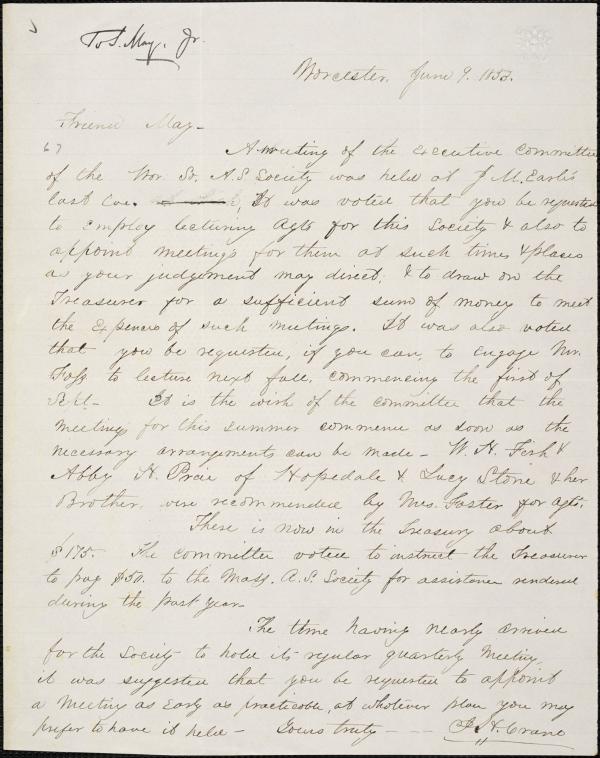 To S. May, Jr.
Worcester, June 9. 1853.
Friend May -
67
A meeting of the Executive Committee
of the Wor. So. A. S. Society was held at J. M. Earle's
last Eve. It was voted that you be requested
to employ lecturing Agts for this Society & also to
appoint meetings for them at such times & places
as your judgement may direct, & to draw on the
Treasurer for a sufficient sum of money to meet
the Expences of such meetings. It was also voted
that you be requested, if you can, to engage Mr.
Foss to lecture next fall, commencing the first of
Sept - It is the wish of the committee that the
meetings for this summer commence as soon as the
necessary arrangements can be made - W. H. Fish &
Abby H. Price of Hopedale & Lucy Stone & her
Brother, were recommended by Mrs. Foster for Agts.
There is now in the Treasury about
$175 - The committee voted to instruct the Treasurer
to pay $50. to the Mass. A. S. Society for assistance rendered
during the past year -
The time having nearly arrived
for the Society to hold its regular quarterly Meeting
it was suggested that you be requested to appoint
a Meeting as Early as practicable, at whatever place you may
prefer to have it held - Yours truly - - - J. H. Crane